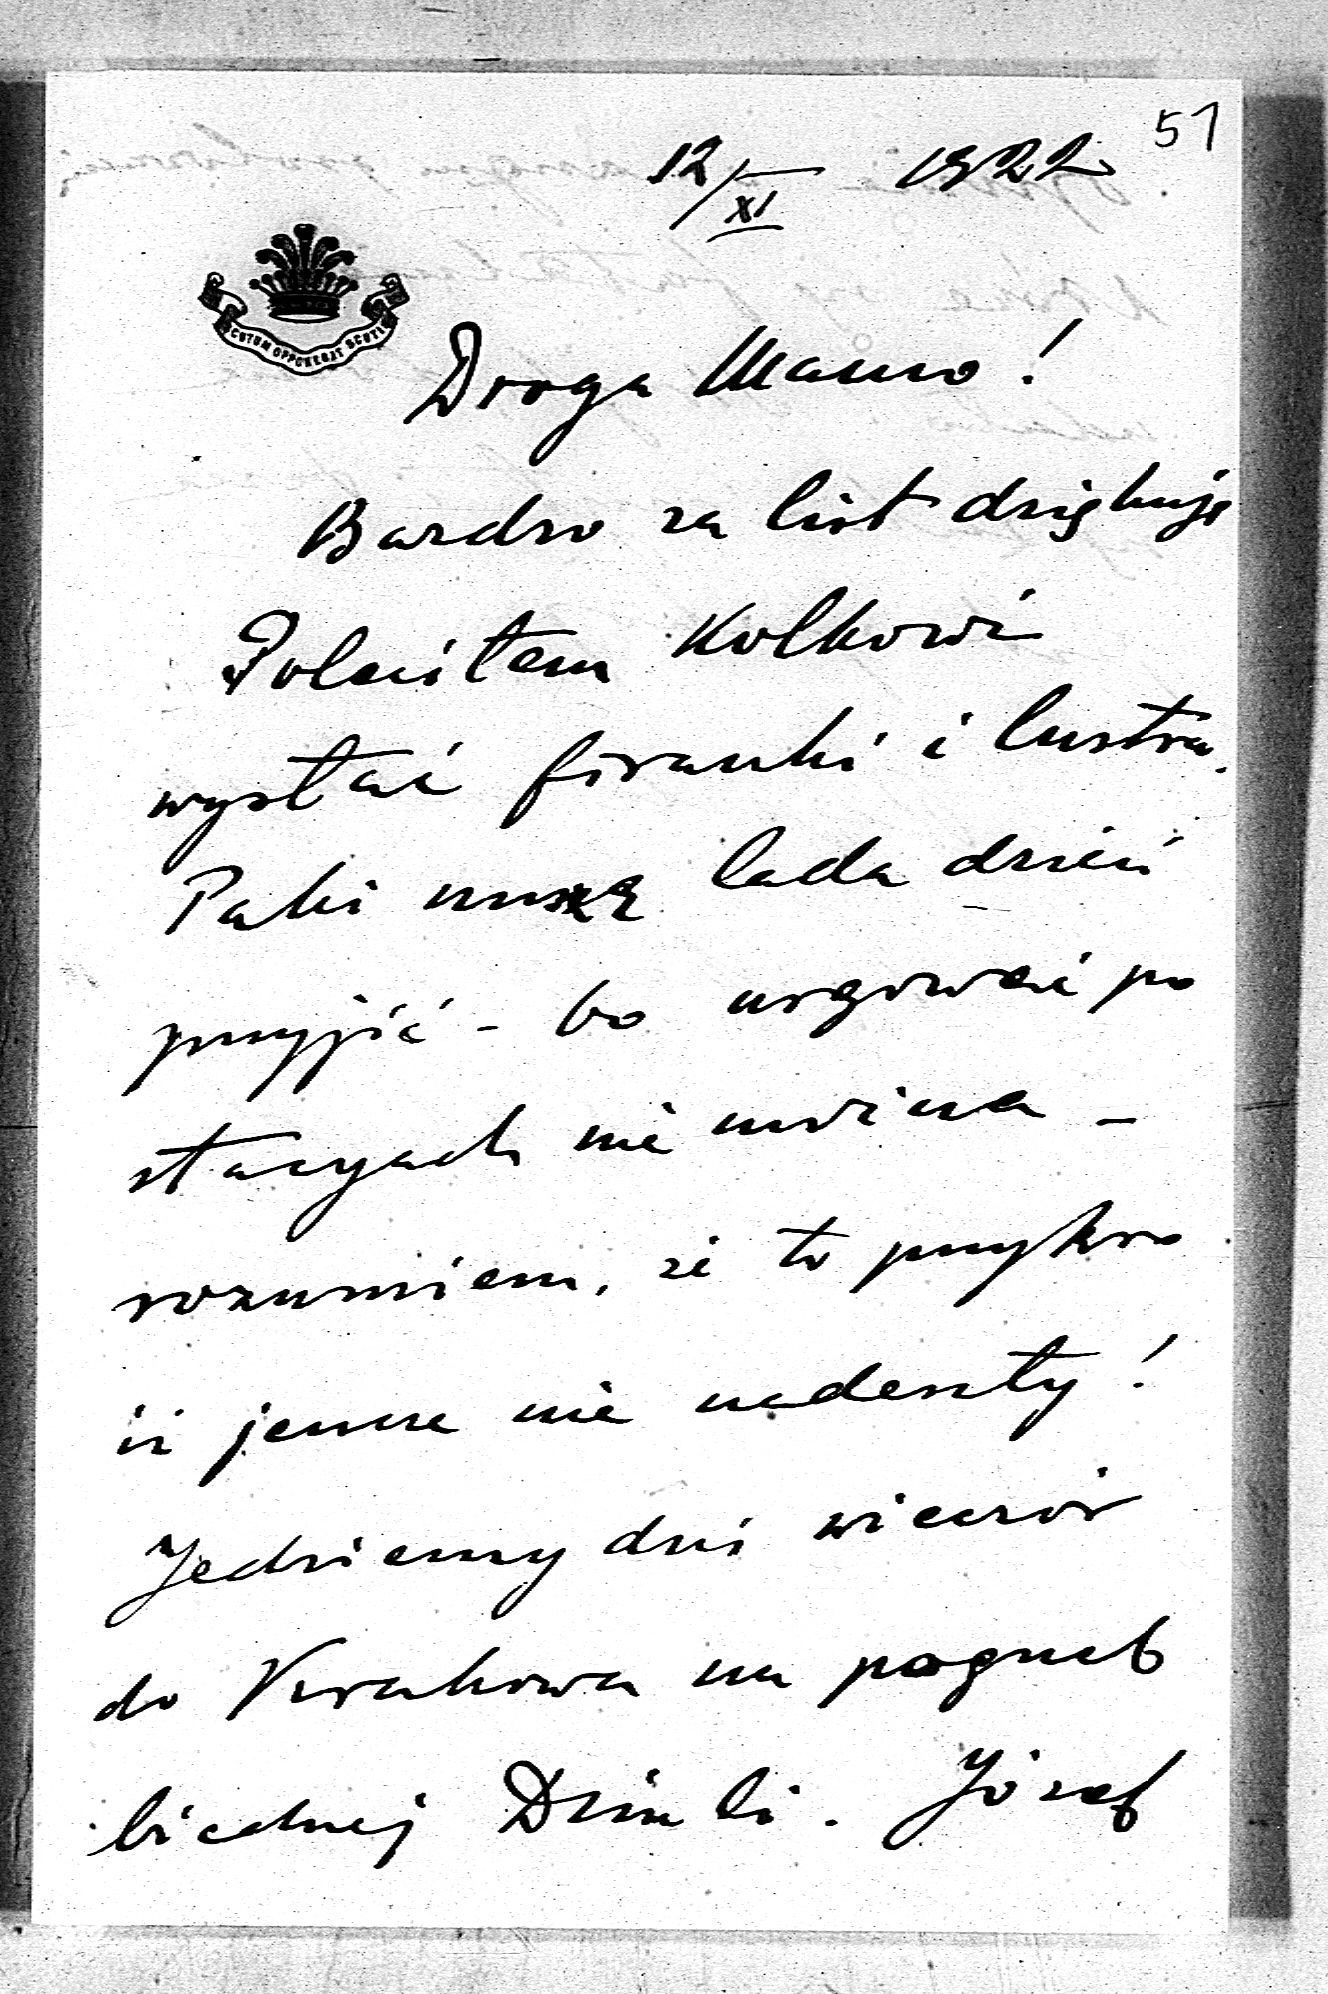 51
12/XI 1922
SCUTUM OPPONEBAT SCUTIS
Droga Mamo!
Bardzo za list dziękuję
Poleciłem Kolkowi
wysłać firanki i lustra.
Paki muszą lada dzień
przyjść - bo urgować po
stacyach nie można -
rozumiem, że to przykro
iż jeszcze nie nadeszły!
Jedziemy dziś wieczór
do Krakowa na pogrzeb
biednej Dzinli. Józef